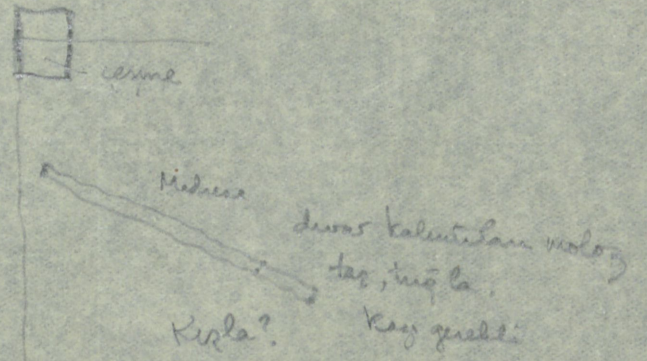 çeşme
Medrese
duvar kalıntıları moloz
taş, tuğla.
Kışla?
Kazı gerekli